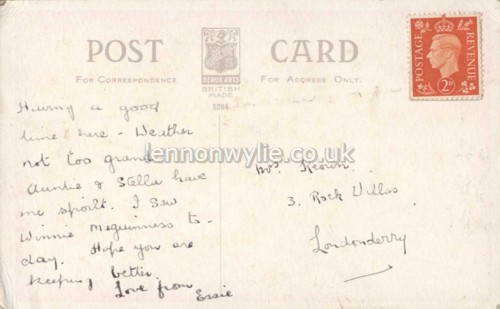 POST CARD
FOR CORRESPONDENCE FOR ADDRESS ONLY.
BRITISH
MADE
POSTAGE REVENUE
2D
Having a good
time here - Weather
not too grand
Auntie & Stella have
me spoilt. I saw
Winnie Meguinness to-
day. Hope you are
keeping better.
Love from
Essie
lennonwylie.co.uk
Mrs Keown.
3. Rock Villas
Londonderry